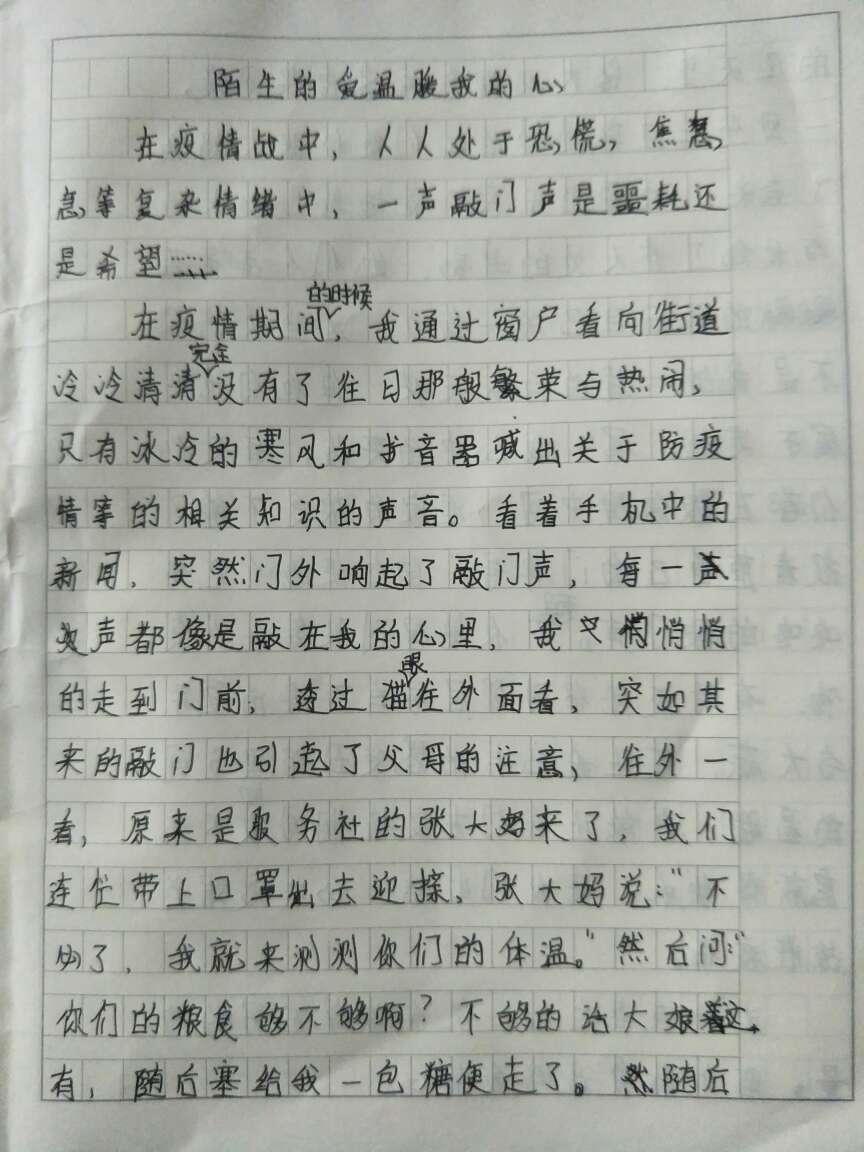 陌生的爱温暖我的心
在疫情战中，人人处于恐慌，焦急，
急等复杂情绪中，一声敲门声是噩耗还
是希望……
在疫情期间的时候，我通过窗户看向街道
冷冷清清完全没有了往日那般繁荣与热闹，
只有冰冷的寒风和扩音器喊出关于防疫
情等的相关知识的声音。看着手机中的
新闻，突然门外响起了敲门声，每一声
声都像是敲在我的心里，我悄悄
的走到门前，透过猫眼往外面看，突如其
来的敲门也引起了父母的注意，往外一
看，原来是服务社的张大妈来了，我们
连忙带上口罩出去迎接，张大妈说：“不
了，我就来测测你们的体温。”然后问：“
你们的粮食够不够啊？不够的话大娘这
有，随后塞给我一包糖便走了。随后